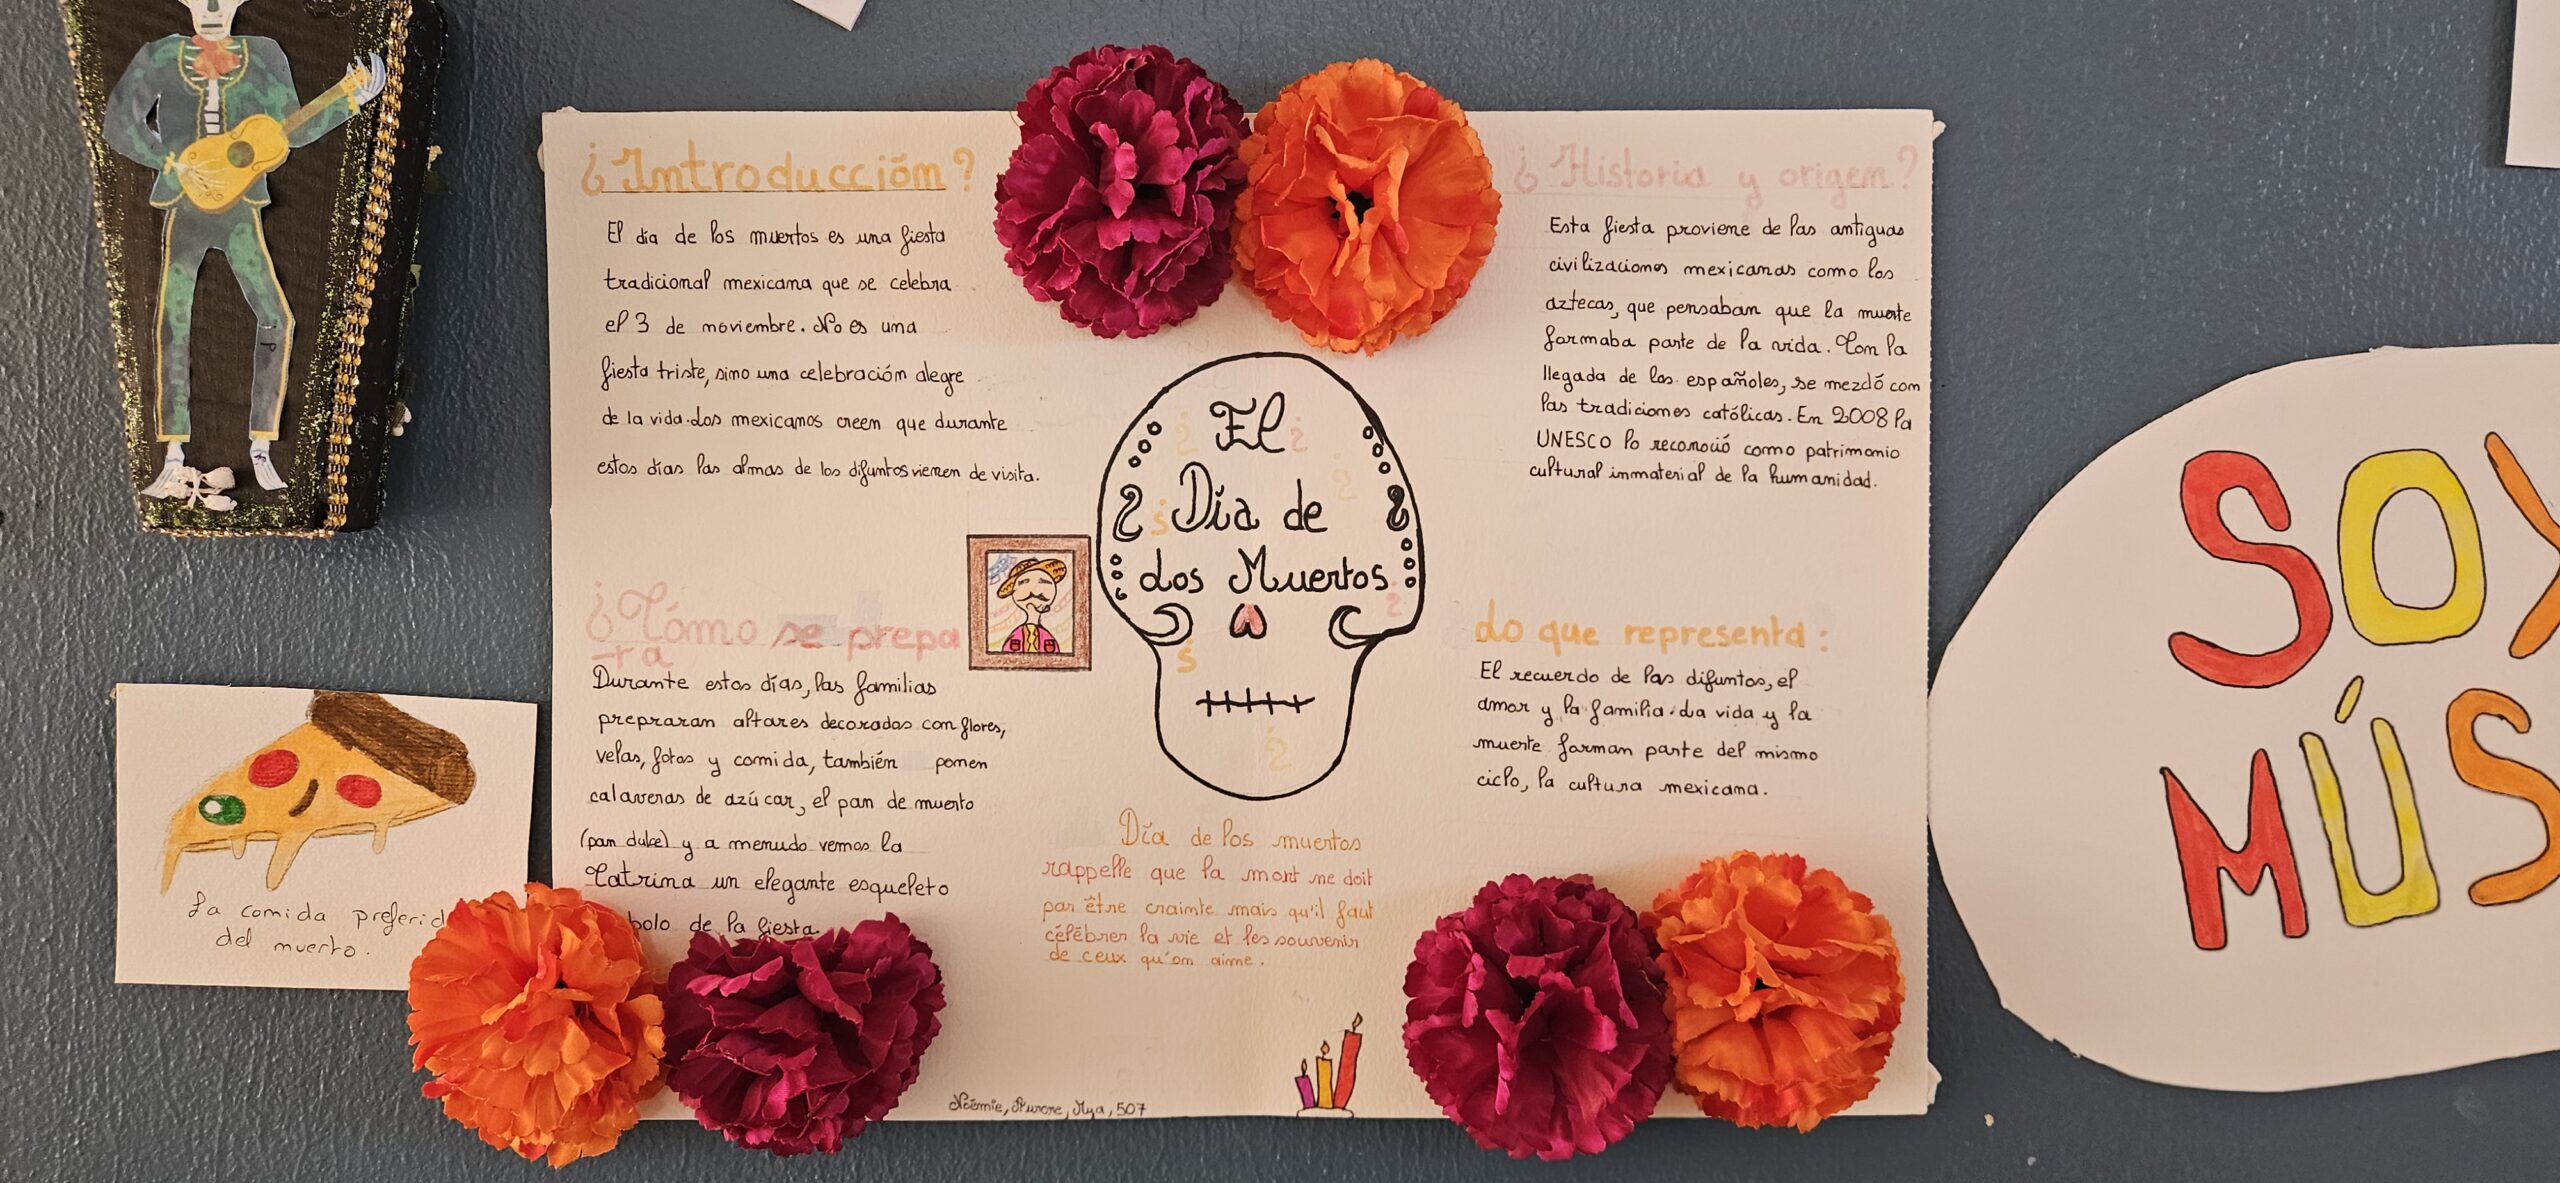 ¿Introducción?
El día de los muertos es una fiesta
tradicional mexicana que se celebra
el 3 de noviembre. No es una
fiesta triste, sino una celebración alegre
de la vida. Los mexicanos creen que durante
estos días las almas de los difuntos vienen de visita.
¿Cómo se prepa
-ra
Durante estos días, las familias
prepraran altares decorados con flores,
velas, fotos y comida, también ponen
calaveras de azúcar, el pan de muerto
(pan dulce) y a menudo vemos la
Catrina un elegante esqueleto
bolo de la fiesta.
El
Día de
Los Muertos
Día de los muertos
rappelle que la mort ne doit
pas être crainte mais qu'il faut
célébrer la vie et les souvenir
de ceux qu'on aime.
Noémie, Aurore, Mya, 507
¿Historia y origen?
Esta fiesta proviene de las antiguas
civilizaciones mexicanas como los
aztecas, que pensaban que la muerte
formaba parte de la vida. Con la
llegada de los españoles, se mezcló con
las tradiciones católicas. En 2008 la
UNESCO lo reconoció como patrimonio
cultural inmaterial de la humanidad.
Lo que representa :
El recuerdo de las difuntos, el
amor y la familia. La vida y la
muerte forman parte del mismo
ciclo, la cultura mexicana.
La comida preferid
del muerto.
SOY
MÚS